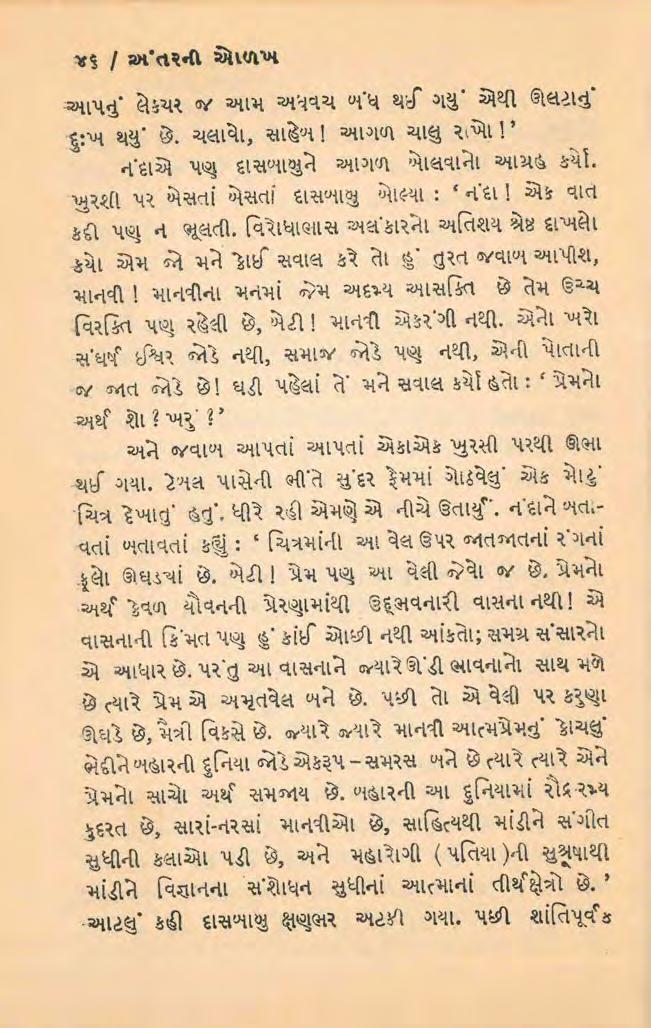 ૪૬ / અંતરની ઓળખ
આપનું લેક્ચર જ આમ અધવચ બંધ થઈ ગયું એથી ઊલટાનું
દુઃખ થયું છે. ચલાવો, સાહેબ ! આગળ ચાલુ રાખો !’
નંદાએ પણ દાસબાબુને આગળ બોલવાનો આગ્રહ કર્યો.
ખુરશી પર બેસતાં બેસતાં દાસબાબુ બોલ્યા : ‘ નંદા ! એક વાત
કદી પણ ન ભૂલતી. વિરોધાભાસ અલંકારનો અતિશય શ્રેષ્ઠ દાખલો
કયો એમ જો મને કોઈ સવાલ કરે તો હું તુરત જવાબ આપીશ,
માનવી ! માનવીના મનમાં જેમ અદમ્ય આસક્તિ છે તેમ ઉચ્ચ
વિરક્તિ પણ રહેલી છે, બેટી ! માનવી એકરંગી નથી. એનો ખરો
સંઘર્ષ ઈશ્વર જોડે નથી, સમાજ જોડે પણ નથી, એની પોતાની
જ જાત જોડે છે! ઘડી પહેલાં તેં મને સવાલ કર્યો હતો : ‘ પ્રેમનો
અર્થ શો ? ખરું ?’
અને જવાબ આપતાં આપતાં એકાએક ખુરસી પરથી ઊભા
થઈ ગયા. ટેબલ પાસેની ભીંતે સુંદર ફ્રેમમાં ગોઠવેલું એક મોટું
ચિત્ર દેખાતું હતું. ધીરે રહી એમણે એ નીચે ઉતાર્યું. નંદાને બતા-
વતાં બતાવતાં કહ્યું : ‘ ચિત્રમાંની આ વેલ ઉપર જાતજાતનાં રંગનાં
ફૂલો ઊઘડ્યાં છે. બેટી ! પ્રેમ પણ આ વેલી જેવો જ છે. પ્રેમનો
અર્થ કેવળ યૌવનની પ્રેરણામાંથી ઉદ્દભવનારી વાસના નથી! એ
વાસનાની કિંમત પણ હું કાંઈ ઓછી નથી આંકતો; સમગ્ર સંસારનો
એ આધાર છે. પરંતુ આ વાસનાને જ્યારે ઊંડી ભાવનાનો સાથ મળે
છે ત્યારે પ્રેમ એ અમૃતવેલ બને છે. પછી તો એ વેલી પર કરુણા
ઊઘડે છે, મૈત્રી વિકસે છે. જ્યારે જ્યારે માનવી આત્મપ્રેમનું કોચલું
ભેદીને બહારની દુનિયા જોડે એકરૂપ – સમરસ બને છે ત્યારે ત્યારે એને
પ્રેમનો સાચો અર્થ સમજાય છે. બહારની આ દુનિયામાં રૌદ્ર-રમ્ય
કુદરત છે, સારાં-નરસાં માનવીઓ છે, સાહિત્યથી માંડીને સંગીત
સુધીની કલાઓ પડી છે, અને મહારોગી ( પતિયા )ની સુશ્રૂષાથી
માંડીને વિજ્ઞાનના સંશોધન સુધીનાં આત્માનાં તીર્થક્ષેત્રો છે. ’
આટલું કહી દાસબાબુ ક્ષણભર અટકી ગયા. પછી શાંતિપૂર્વક